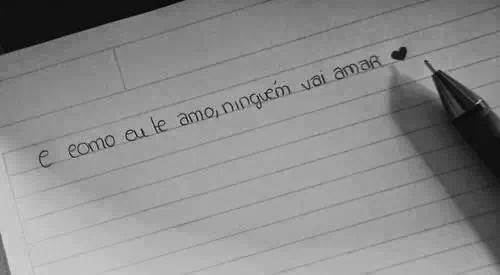 e como eu te amo, ninguém vai amar ♥